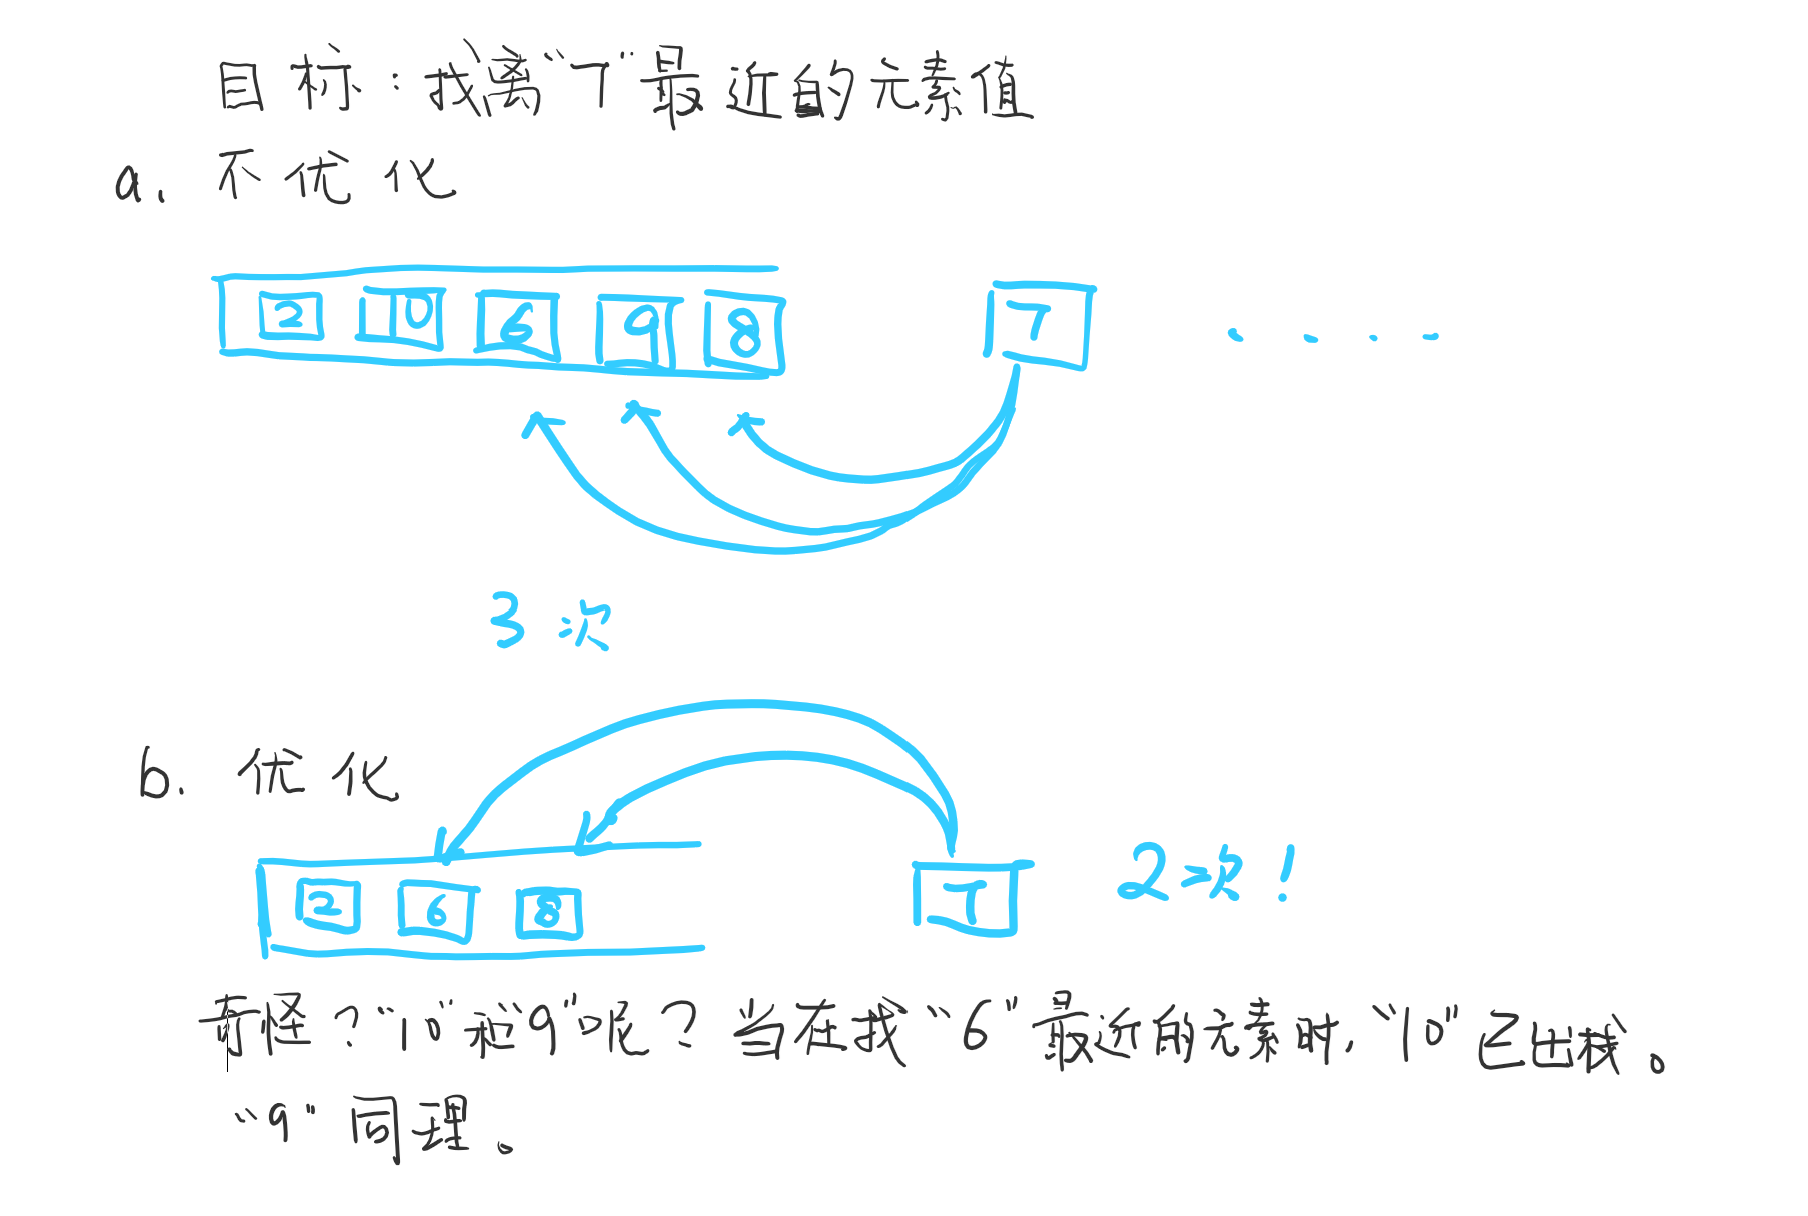 目标：找离“7”最近的元素值
a. 不优化
2 10 6 9 8 7 ....
3次
b. 优化
2 6 8 7 2次！
奇怪？“10”和“9”呢？当在找“6”最近的元素时，“10”已出栈。
“9”同理。